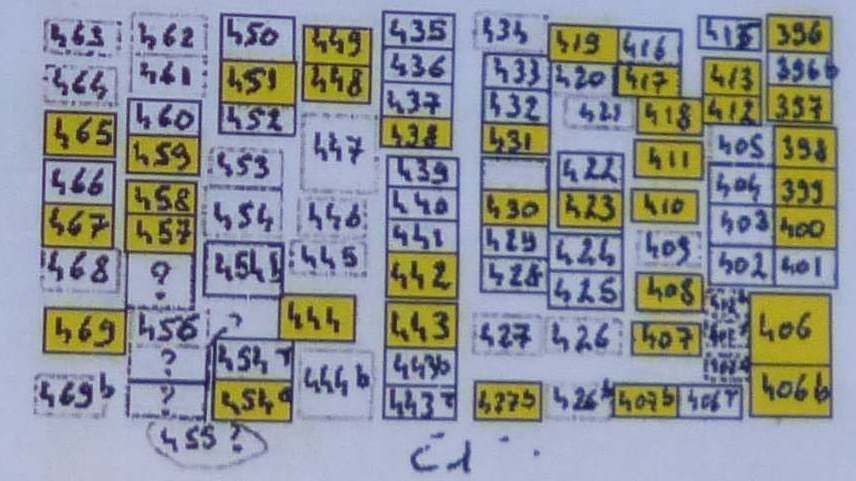 463 462 450 449 435 434 419 416 415 396
464 461 451 448 436 433 420 417 413 396b
465 460 452 447 437 432 421 418 412 397
459 453 438 431 411 405 398
466 458 454 446 439 422 404 399
467 457 440 430 423 410 403 400
468 ? 445 441 429 424 409 402 401
442 428 425 408
469 456 ? 444 443 427 426 407 406
? 454r 444b 443b
469b ? 454a 443r 427b 426b 407b 406r 406b
455?
C1